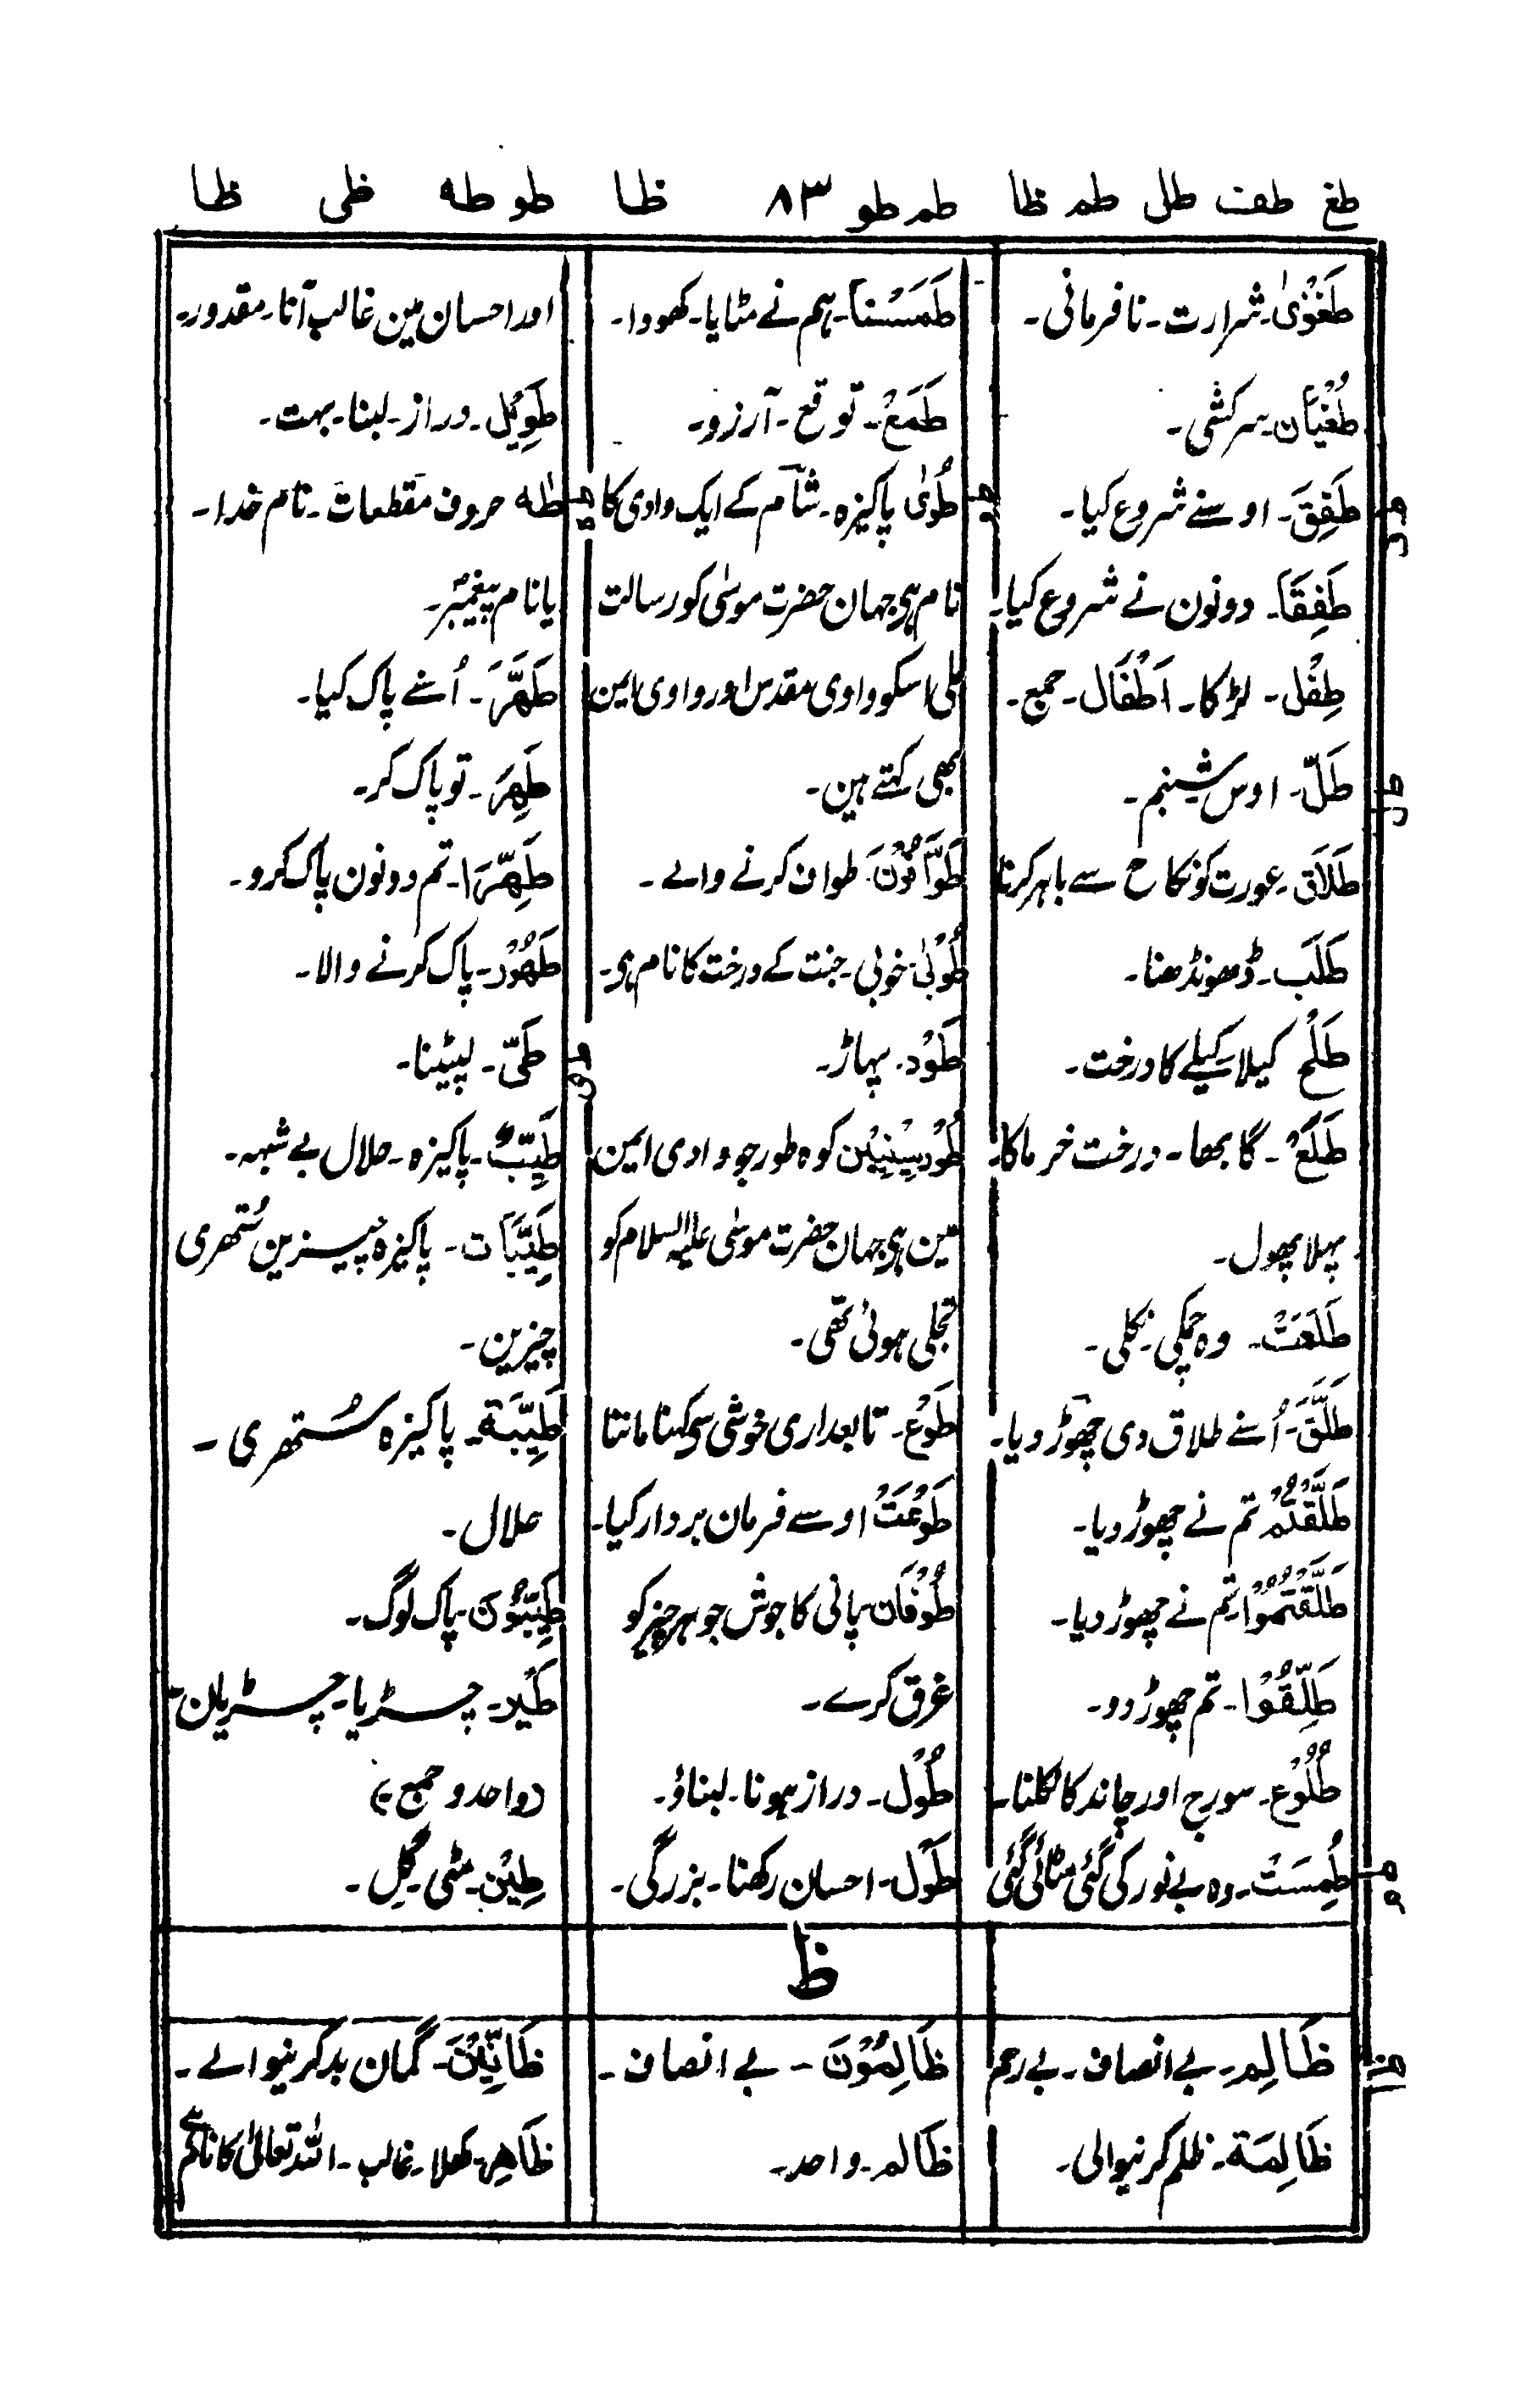 طغ طفت طل طم ظا طم طو ۸۳ ظا طو طه طی ظا
طَغْوٰىٰ۔ شرارت۔ نافرمانی۔
طُغْيَان۔ سرکشی۔
طف
طَفِقَ۔ اوسنے شروع کیا۔
طَفِقَا۔ دونون نے شروع کیا۔
طِفْل۔ لڑکا۔ اَطْفَال۔ جمع۔
طل
طَلّ۔ اوس۔ شبنم۔
طَلَاق۔ عورت کو نکاح سے باہر کرنا
طَلَب۔ ڈھونڈھنا۔
طَلْح کیلا۔ کیلے کا درخت۔
طَلَعْ۔ گابھا۔ درخت خرما کا۔
پہلا پھول۔
طَلَعَتْ۔ وہ چمکی۔ نکلی۔
طَلَّقَ۔ اُسنے طلاق دی چھوڑ دیا۔
طَلَّقْتُمْ تم نے چھوڑ دیا۔
طَلَّقْتُمُوْا۔ تم نے چھوڑ دیا۔
طَلِّقُوْا۔ تم چھوڑ دو۔
طُلُوْع۔ سورج اور چاند کا نکلنا۔
طم
طُمِسَتْ۔ وہ بے نور کی گئی مٹائی گئی
طَمَسْنَا۔ ہم نے مٹایا۔ کھودا۔
طَمَعْ۔ توقع۔ آرزو۔
طو
طُوٰى پاکیزہ۔ شام کے ایک وادی کا
نام ہی جہان حضرت موسٰی کو رسالت
ملی اسکو وادی مقدس اور وادی ایمن
بھی کہتے ہین۔
طَوَّافُوْنَ۔ طواف کرنے والے۔
طُوْبٰى۔ خوبی۔ جنت کے درخت کا نام ہی۔
طَوْد۔ پہاڑ۔
طُوْرِسِيْنِيْن کوہ طور جو وادی ایمن
مین ہی جہان حضرت موسٰی علیہ السلام کو
تجلی ہوئی تھی۔
طَوْع۔ تابعداری خوشی سی کہنا ماننا
طَوَّعَتْ اوسے فرمان بردار کیا۔
طُوْفَان۔ پانی کا جوش جو ہر چیز کو
غرق کرے۔
طُوْل۔ دراز ہونا۔ لبناؤ۔
طَوْل۔ احسان رکھنا۔ بزرگی۔
اور احسان مین غالب آنا۔ مقدور۔
طَوِيْل۔ دراز۔ لبنا۔ بہت۔
طه
طٰهٰ حروف مقطعات۔ نام خدا۔
یا نام پیغمبر۔
طَهَّرَ۔ اُسنے پاک کیا۔
طَهِّرْ۔ تو پاک کر۔
طَهِّرَا۔ تم دونون پاک کرو۔
طَهُوْر۔ پاک کرنے والا۔
طی
طَيّ۔ لپیٹنا۔
طَيِّبٌ۔ پاکیزہ۔ حلال بے شبہہ۔
طَيِّبَات۔ پاکیزہ چیزین ستھری
چیزین۔
طَيِّبَة۔ پاکیزہ ستھری۔
حلال۔
طَيِّبُوْنَ۔ پاک لوگ۔
طَيْر۔ چڑیا۔ چڑیان۔
(واحد و جمع ہے)
طِيْن۔ مٹی۔ گِل۔
ظ
ظا
ظَالِم۔ بے انصاف۔ بے رحم
ظَالِمَة۔ ظلم کرنیوالی۔
ظَالِمُوْنَ۔ بے انصاف۔
ظَالم۔ واحد۔
ظَانِّيْنَ۔ گمان بد کرنیوالے۔
ظَاهِر۔ کھلا۔ غالب۔ اللہ تعالیٰ کا نام ہے